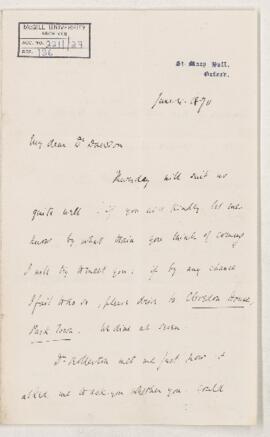 McGILL UNIVERSITY
ARCHIVES
ACC. NO. 2211/27
REF. 136
St. Mary Hall,
Oxford.
June 1870
My dear Dr Dawson
Thursday will suit us
quite well: if you will kindly let me
know by what train you think of coming
I will try to meet you: if by any chance
I fail to do so, please drive to Clevedon House,
Park Town. We dine at seven.
Dr Rolleston met me just now &
asked me to ask you whether you could